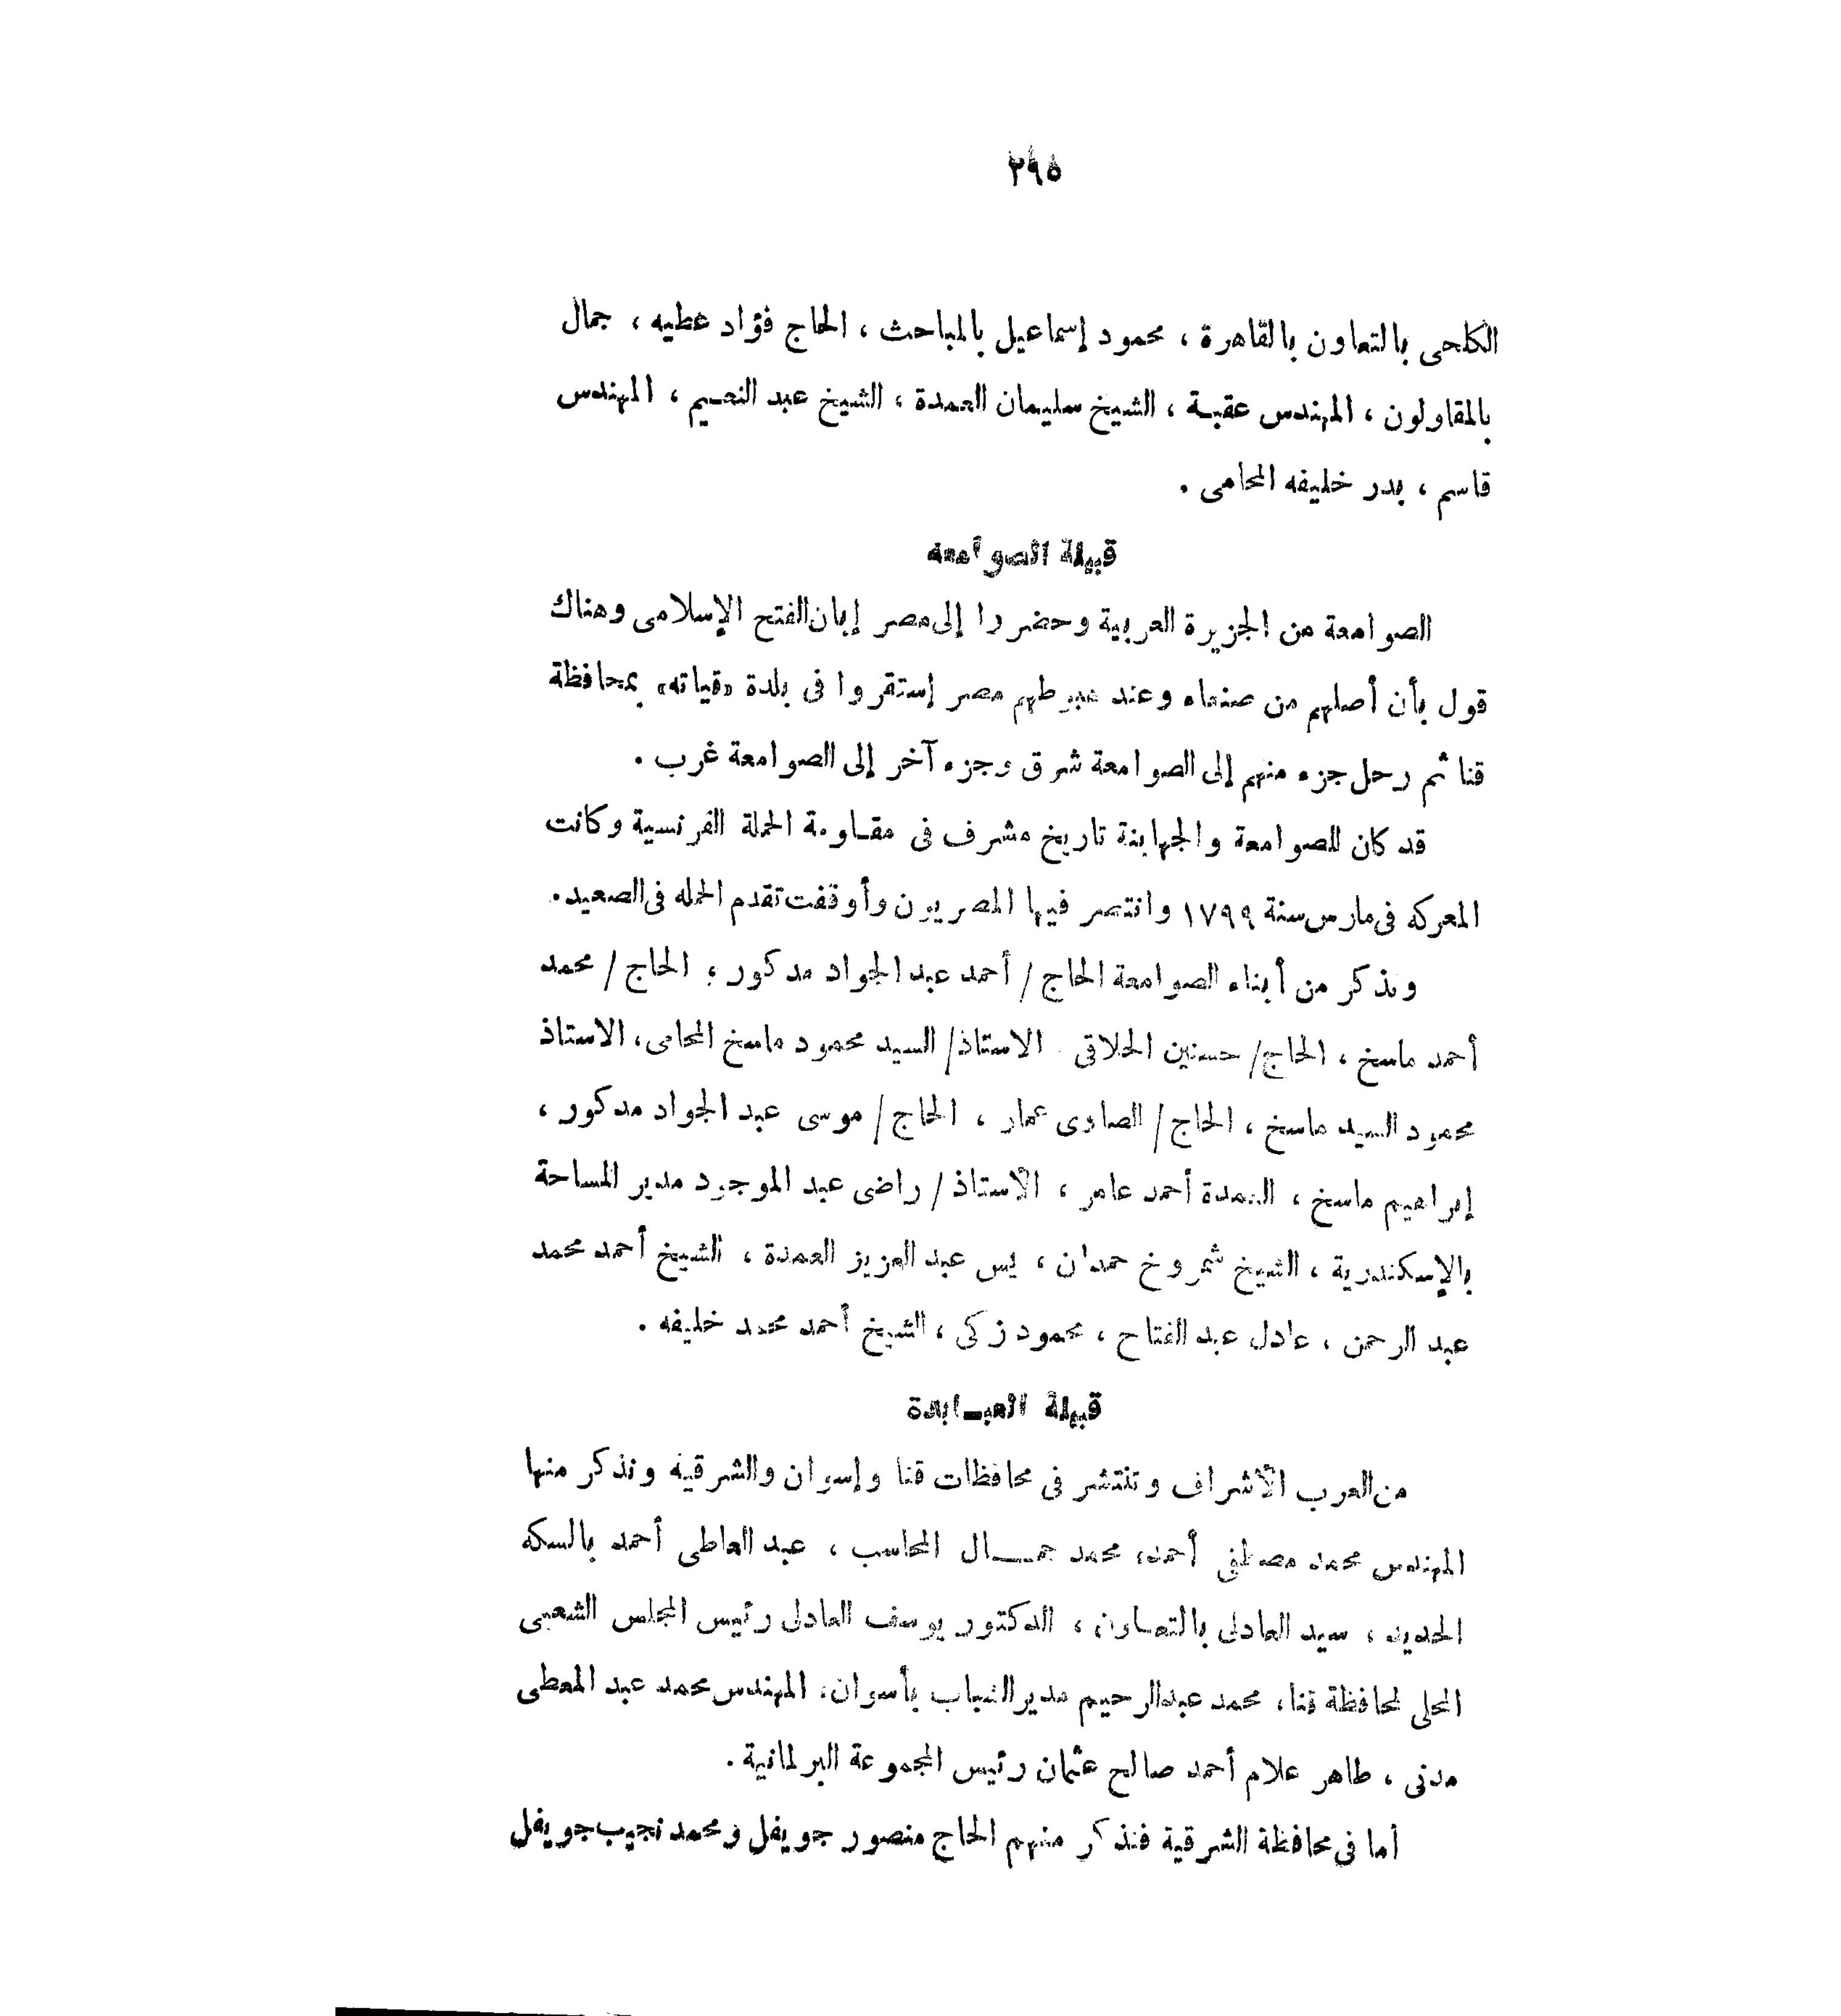 ٢٩٥
الكلحى بالتعاون بالقاهرة ، محمود إسماعيل بالمباحث ، الحاج فؤاد عطيه ، جمال
بالمقاولون ، المهندس عقبة ، الشيخ سليمان العمدة ، الشيخ عبد النعيم ، المهندس
قاسم ، بدر خليفه المحامى .
قبيلة الصوامعة
الصوامعة من الجزيرة العربية وحضروا إلى مصر إبان الفتح الإسلامى وهناك
قول بأن أصلهم من صنعاء وعند هبوطهم مصر إستقروا فى بلدة «قياته» بمحافظة
قنا ثم رحل جزء منهم إلى الصوامعة شرق وجزء آخر إلى الصوامعة غرب .
قد كان للصوامعة والجهابنة تاريخ مشرف فى مقاومة الحملة الفرنسية وكانت
المعركه فى مارس سنة ١٧٩٩ وانتصر فيها المصريون وأوقفت تقدم الحمله فى الصعيد.
ونذكر من أبناء الصوامعة الحاج / أحمد عبد الجواد مدكور ، الحاج / محمد
أحمد ماسخ ، الحاج/ حسنين الحلاقى الاستاذ/ السيد محمود ماسخ المحامى، الاستاذ
محمود السيد ماسخ ، الحاج / الصاوى عمار ، الحاج / موسى عبد الجواد مدكور ،
إبراهيم ماسخ ، العمدة أحمد عامر ، الأستاذ / راضى عبد الموجود مدير المساحة
بالإسكندرية ، الشيخ شمروخ حمدان ، يس عبد العزيز العمدة ، الشيخ أحمد محمد
عبد الرحمن ، عادل عبد الفتاح ، محمود زكى ، الشيخ أحمد محمد خليفه .
قبيلة العبـابدة
من العرب الأشراف وتنتشر فى محافظات قنا وإسوان والشرقية ونذكر منها
المهندس محمد مصطفى أحمد، محمد جمـــال المحاسب ، عبد العاطى أحمد بالسكه
الحديد ، سيد العادلى بالتعـاون ، الدكتور يوسف العادلى رئيس المجلس الشعبى
المحلى لمحافظة قنا، محمد عبدالرحيم مدير الشباب بأسوان، المهندس محمد عبد المعطى
مدنى ، طاهر علام أحمد صالح عثمان رئيس المجموعة البرلمانية .
أما فى محافظة الشرقية فنذكر منهم الحاج منصور جويفل ومحمد نجيب جويفل